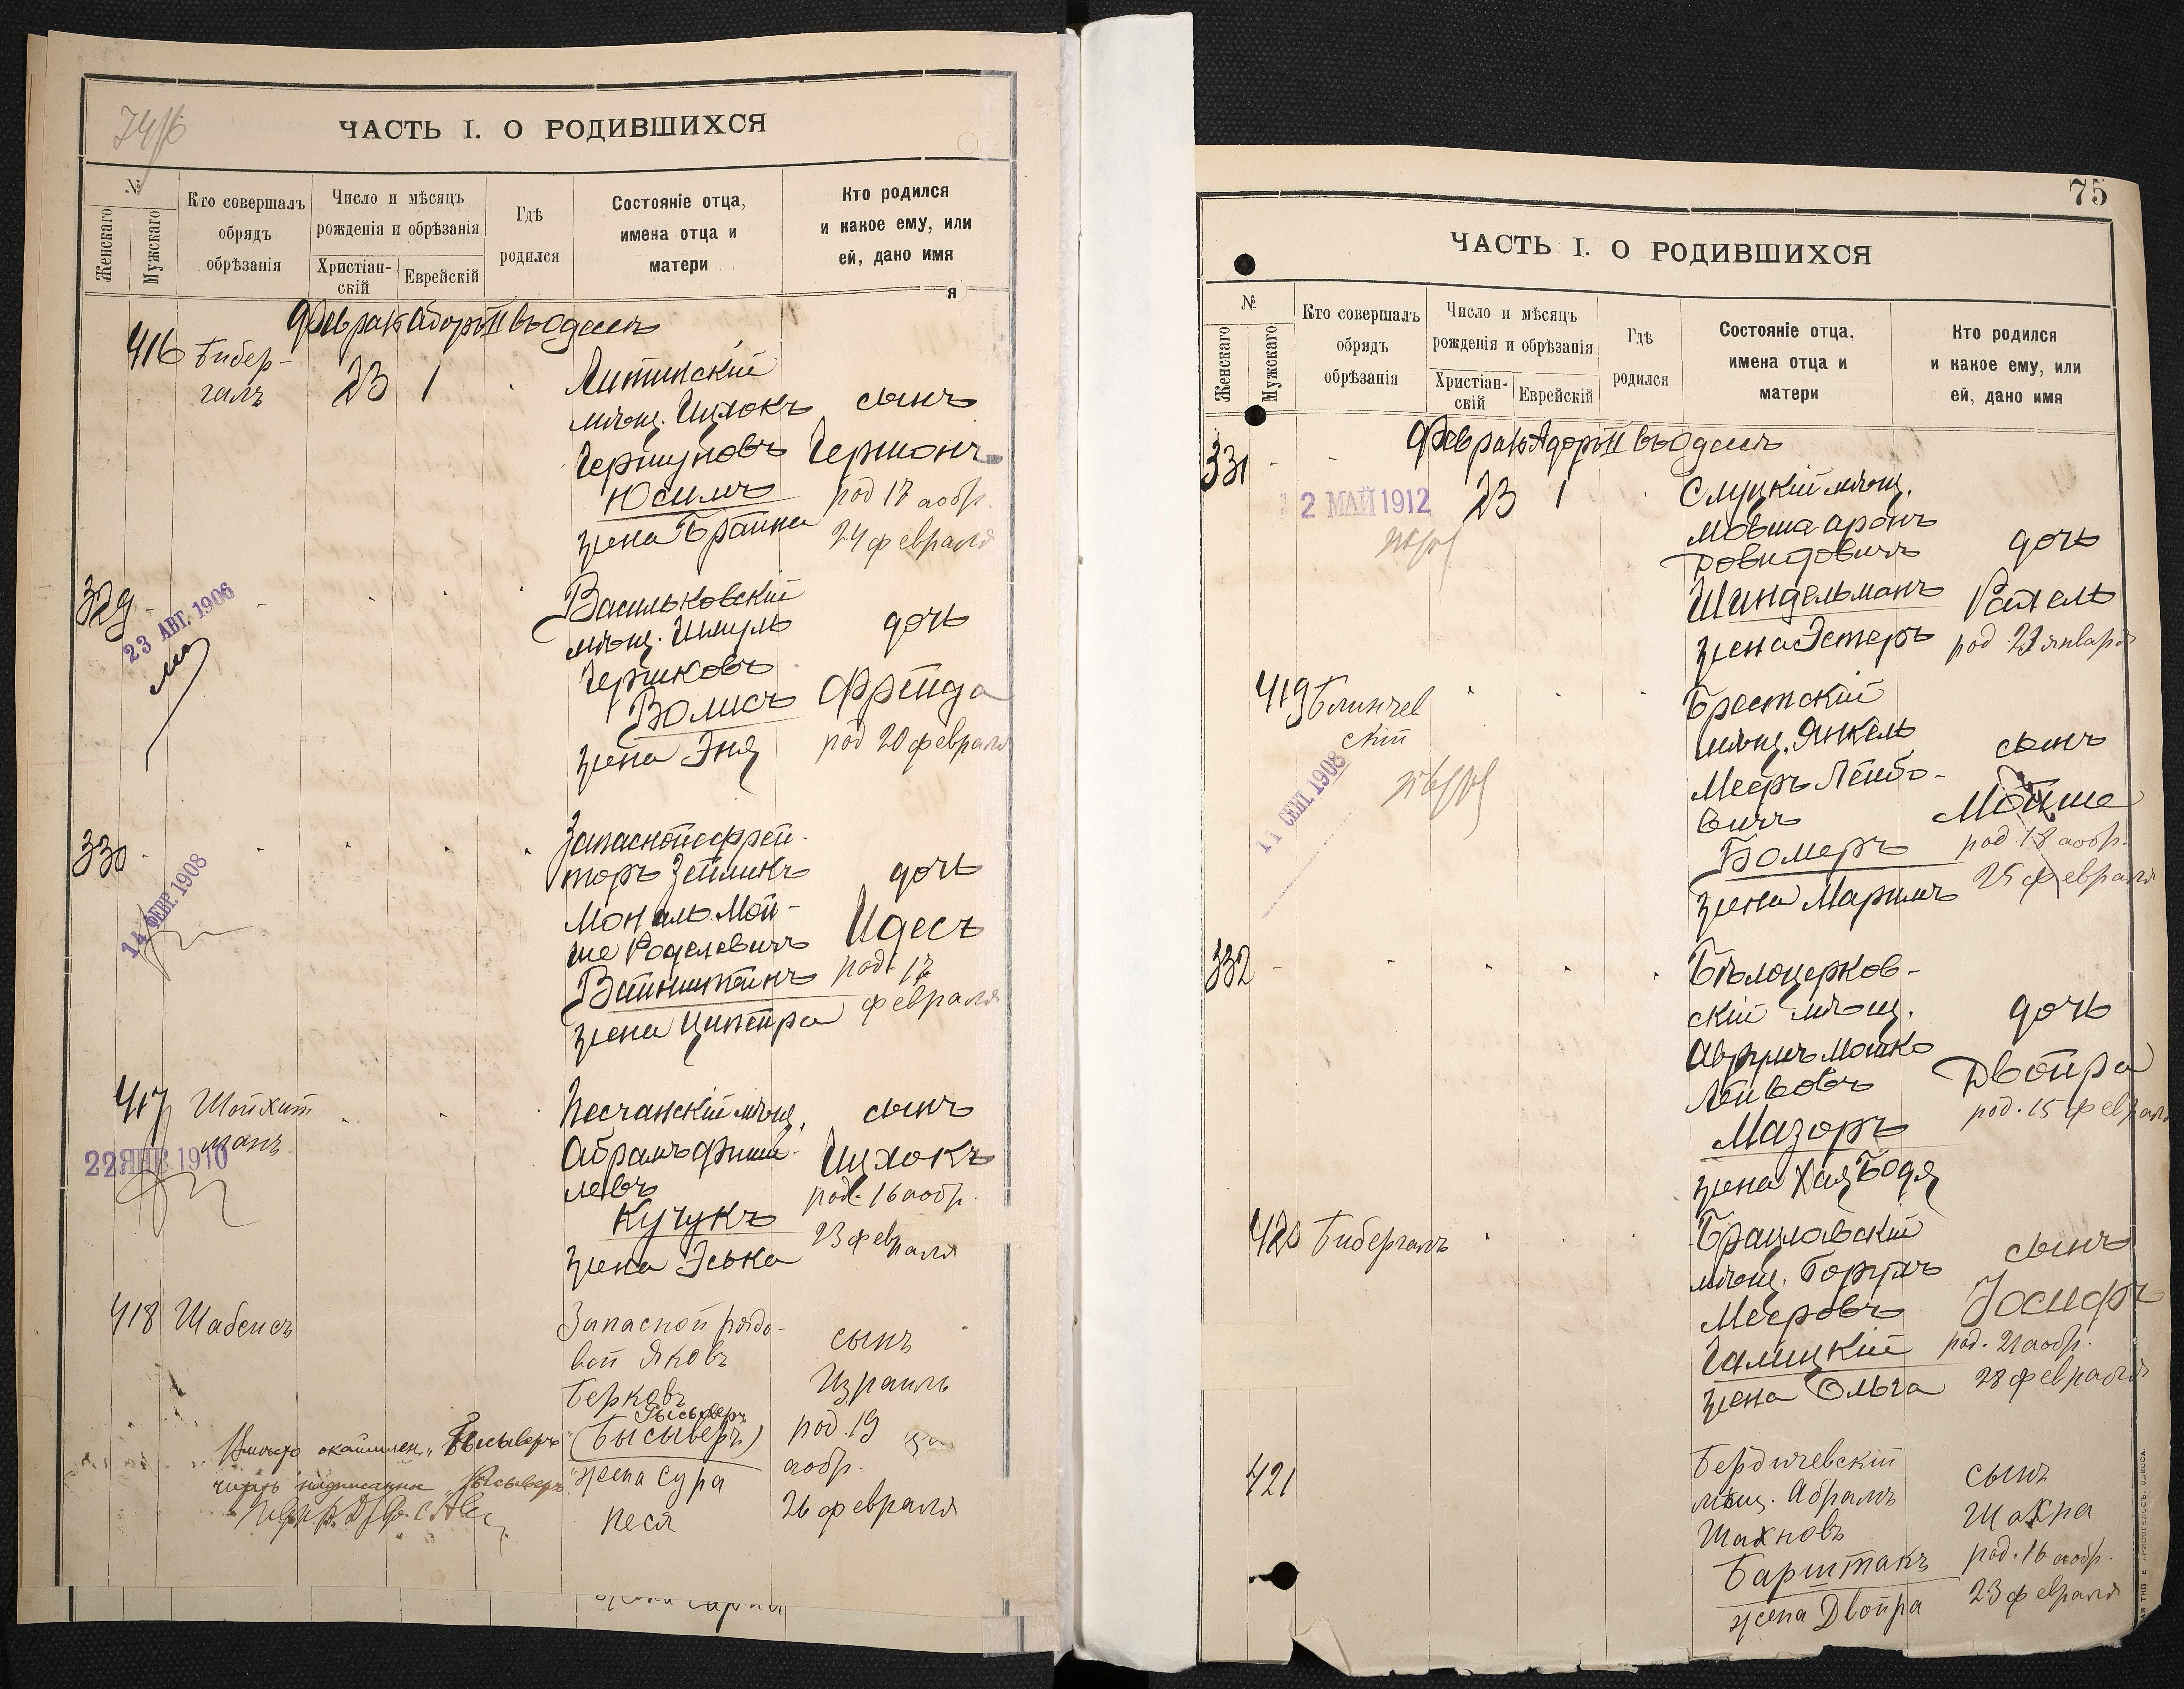 74/б
ЧАСТЬ I. О РОДИВШИХСЯ
№
Женскаго
Мужскаго
Кто совершалъ
обрядъ
обрѣзанія
Число и мѣсяцъ
рожденія и обрѣзанія
Христіан-
скій
Еврейскій
Гдѣ
родился
Состояніе отца,
имена отца и
матери
Кто родился
и какое ему, или
ей, дано имя
я
Февраль Адоръ II въ Одессѣ
416
Бибер-
галъ
23
1
Литинскій
мѣщ. Ицхокъ
Гершуновъ
Юсимъ
жена Брайна
сынъ
Гершонъ
род 17 аобр.
24 февраля
329
23 АВГ. 1906
Васильковскій
мѣщ. Шмуль
Гершковъ
Волисъ
жена Эня
дочь
Фрейда
род 20 февраля
330
14 ФЕВР. 1908
Запасной ефрей-
торъ Зейликъ
Мониль Мой-
ше Роделевичъ
Вайнштейнъ
жена Ципейра
дочь
Идесъ
род. 17
февраля
417
Шойхит
манъ
22 ЯНВ. 1910
Песчанскій мѣщ.
Абрамъ Фиши-
левъ
Кучукъ
жена Эська
сынъ
Ицхокъ
род. 16 аобр.
23 февраля
418
Шабсисъ
Запасной рядо-
вой Яковъ
Берковъ
(Бысыверъ)
жена Сура
Песя
сынъ
Израиль
род. 19
аобр.
26 февраля
Вмѣсто окаймлен. „Бысыверъ“
читать надписанное
75
ЧАСТЬ I. О РОДИВШИХСЯ
№
Женскаго
Мужскаго
Кто совершалъ
обрядъ
обрѣзанія
Число и мѣсяцъ
рожденія и обрѣзанія
Христіан-
скій
Еврейскій
Гдѣ
родился
Состояніе отца,
имена отца и
матери
Кто родился
и какое ему, или
ей, дано имя
Февраль Адоръ II въ Одессѣ
331
2 МАЙ 1912
23
1
Слуцкій мѣщ.
Мовша Аронъ
Довидовичъ
Шиндельманъ
жена Эстеръ
дочь
Рахель
род. 27 января
419
Блинчев
скій
11 СЕНТ. 1908
Брестский
мѣщ. Янкель
Мееръ Лейбо-
вичъ
Бомеръ
жена Маримъ
сынъ
Мойше
род. 18 аобр.
25 февраля
332
Бѣлоцерков-
скій мѣщ.
Аврумъ Мошко
Лейвовъ
Мазоръ
жена Хая Бодя
дочь
Двойра
род. 15 февраля
420
Бибергалъ
Браиловскій
мѣщ. Борухъ
Мееровъ
Галицкій
жена Ольга
сынъ
Іосифъ
род. 21 аобр.
28 февраля
421
Бердичевскій
мѣщ. Абрамъ
Шахновъ
Барштакъ
жена Двойра
сынъ
Шахна
род. 16 аобр.
23 февраля